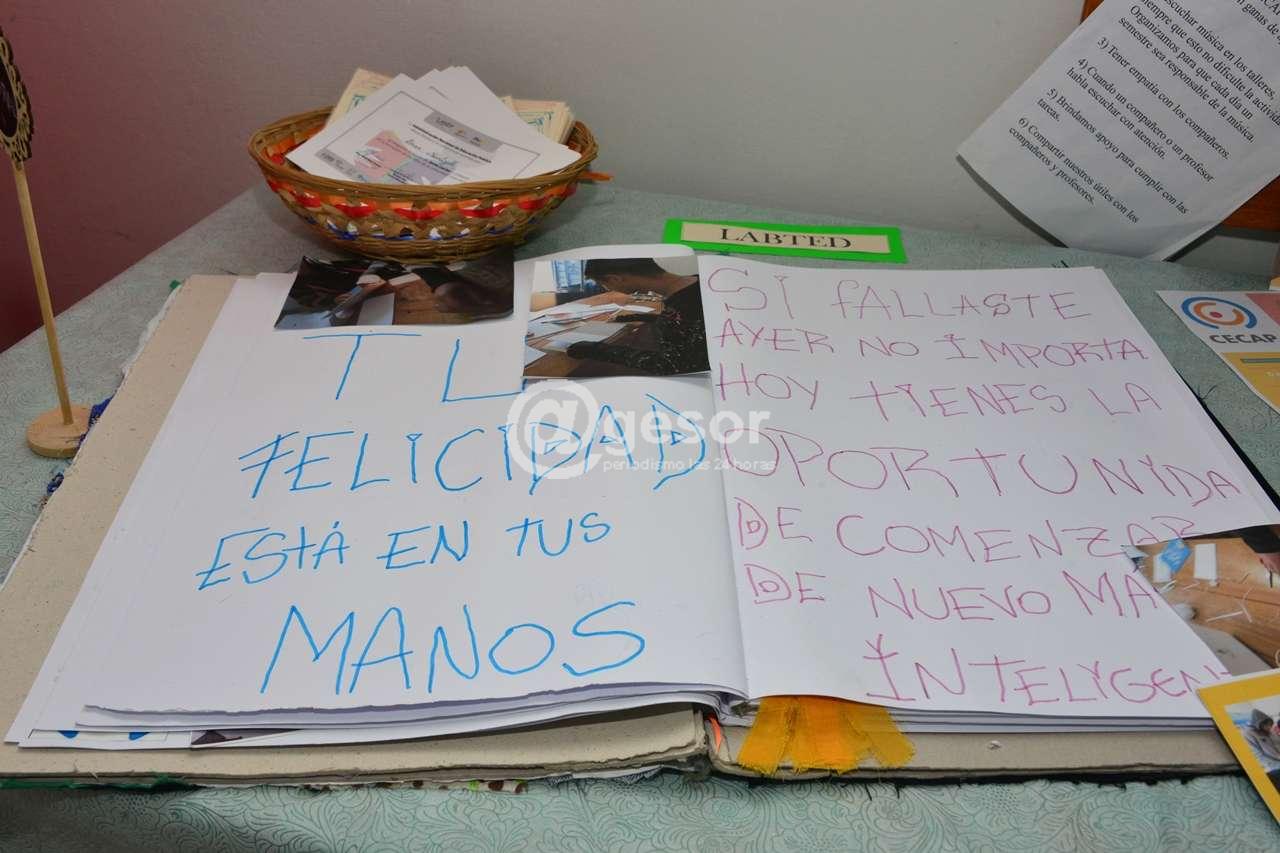 escuchar música en los talleres,
siempre que esto no dificulte la activida
Organizamos para que cada día un
semestre sea responsable de la música.
3) Tener empatía con los compañeros.
4) Cuando un compañero o un profesor
habla escuchar con atención.
5) Brindamos apoyo para cumplir con las
tareas.
6) Compartir nuestros útiles con los
compañeros y profesores.
LABTED
CECAP
TU
FELICIDAD
ESTÁ EN TUS
MANOS
SI FALLASTE
AYER NO IMPORTA
HOY TIENES LA
OPORTUNIDA
DE COMENZAR
DE NUEVO MA
INTELYGEN
@gesor
periodismo las 24 horas